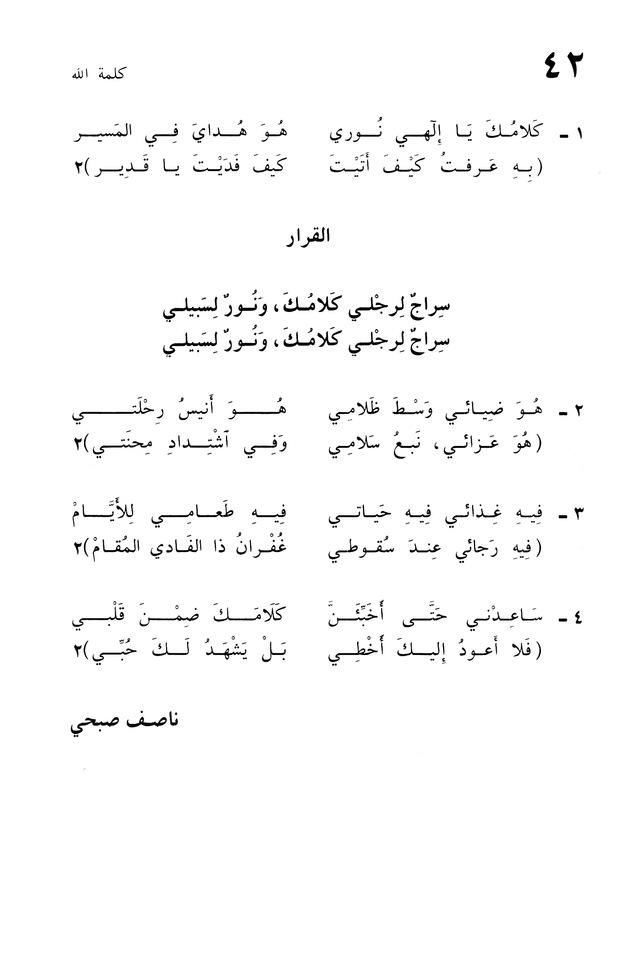 ٤٢
كلمة الله
١ ـ كَلَامُكَ يَا إِلٰهي نُوري هُوَ هُدايَ فِي المَسير
(بِهِ عَرفتُ كَيْفَ أَتَيْتَ كَيفَ فَدَيْتَ يا قَدِير)٢
القرار
سِراجٌ لِرجْلي كَلامُكَ، وَنُورٌ لِسَبيلي
سِراجٌ لِرجْلي كَلامُكَ، وَنُورٌ لِسَبيلي
٢ ـ هُوَ ضِيائي وَسْطَ ظَلامِي هُوَ أَنيسُ رِحْلَتي
(هُوَ عَزائي، نَبعُ سَلامِي وَفِي ٱشْتِدادِ مِحنَتي)٢
٣ ـ فِيهِ غِذائي فِيهِ حَياتي فِيهِ طَعامِي لِلأَيَّامْ
(فِيهِ رَجائي عِندَ سُقوطي غُفْرانُ ذا الفَادي المُقامْ)٢
٤ ـ سَاعِدْني حَتَّى أُخَبِّئَنَّ كَلَامَكَ ضِمْنَ قَلْبي
(فَلا أعودُ إِليكَ أُخْطِي بَلْ يَشْهَدُ لَكَ حُبِّي)٢
ناصف صبحي